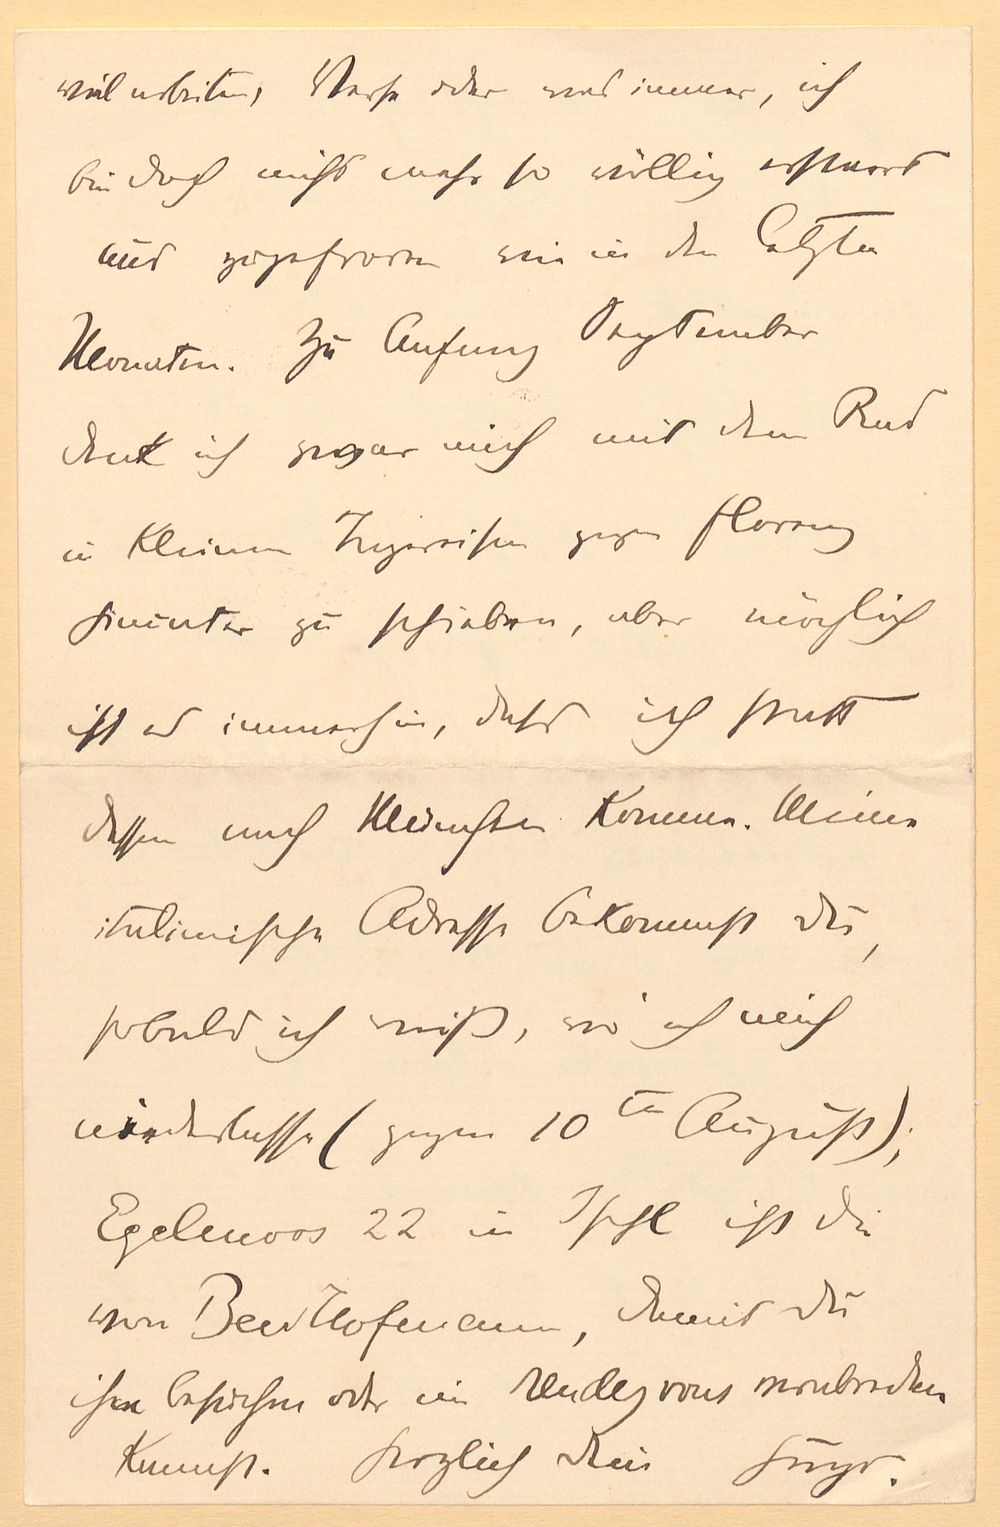 viel arbeiten, Verse oder was immer, ich
bin doch nicht mehr so völlig erstarrt
und zugefroren wie in den letzten
Monaten. Zu Anfang September
denk ich zwar mich mit dem Rad
in kleinen Tagereisen gegen Florenz
hinunter zu schieben, aber möglich
ist es immerhin, dass ich statt
dessen nach München komme. Meine
italienische Adresse bekommst du,
sobald ich weiß, wo ich mich
niederlasse (gegen 10ten August);
Egelmoos 22 in Ischl ist die
von Beer Hofmann, damit du
ihn besuchen oder ein Rendezvous verabreden
kannst. Herzlich dein Hugo.